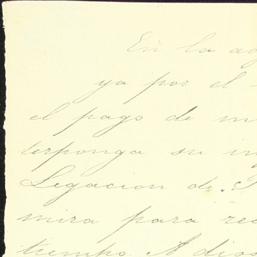 En la
ya por el
el pago de
terponga su
Legacion de
mira para
tiempo. A dios